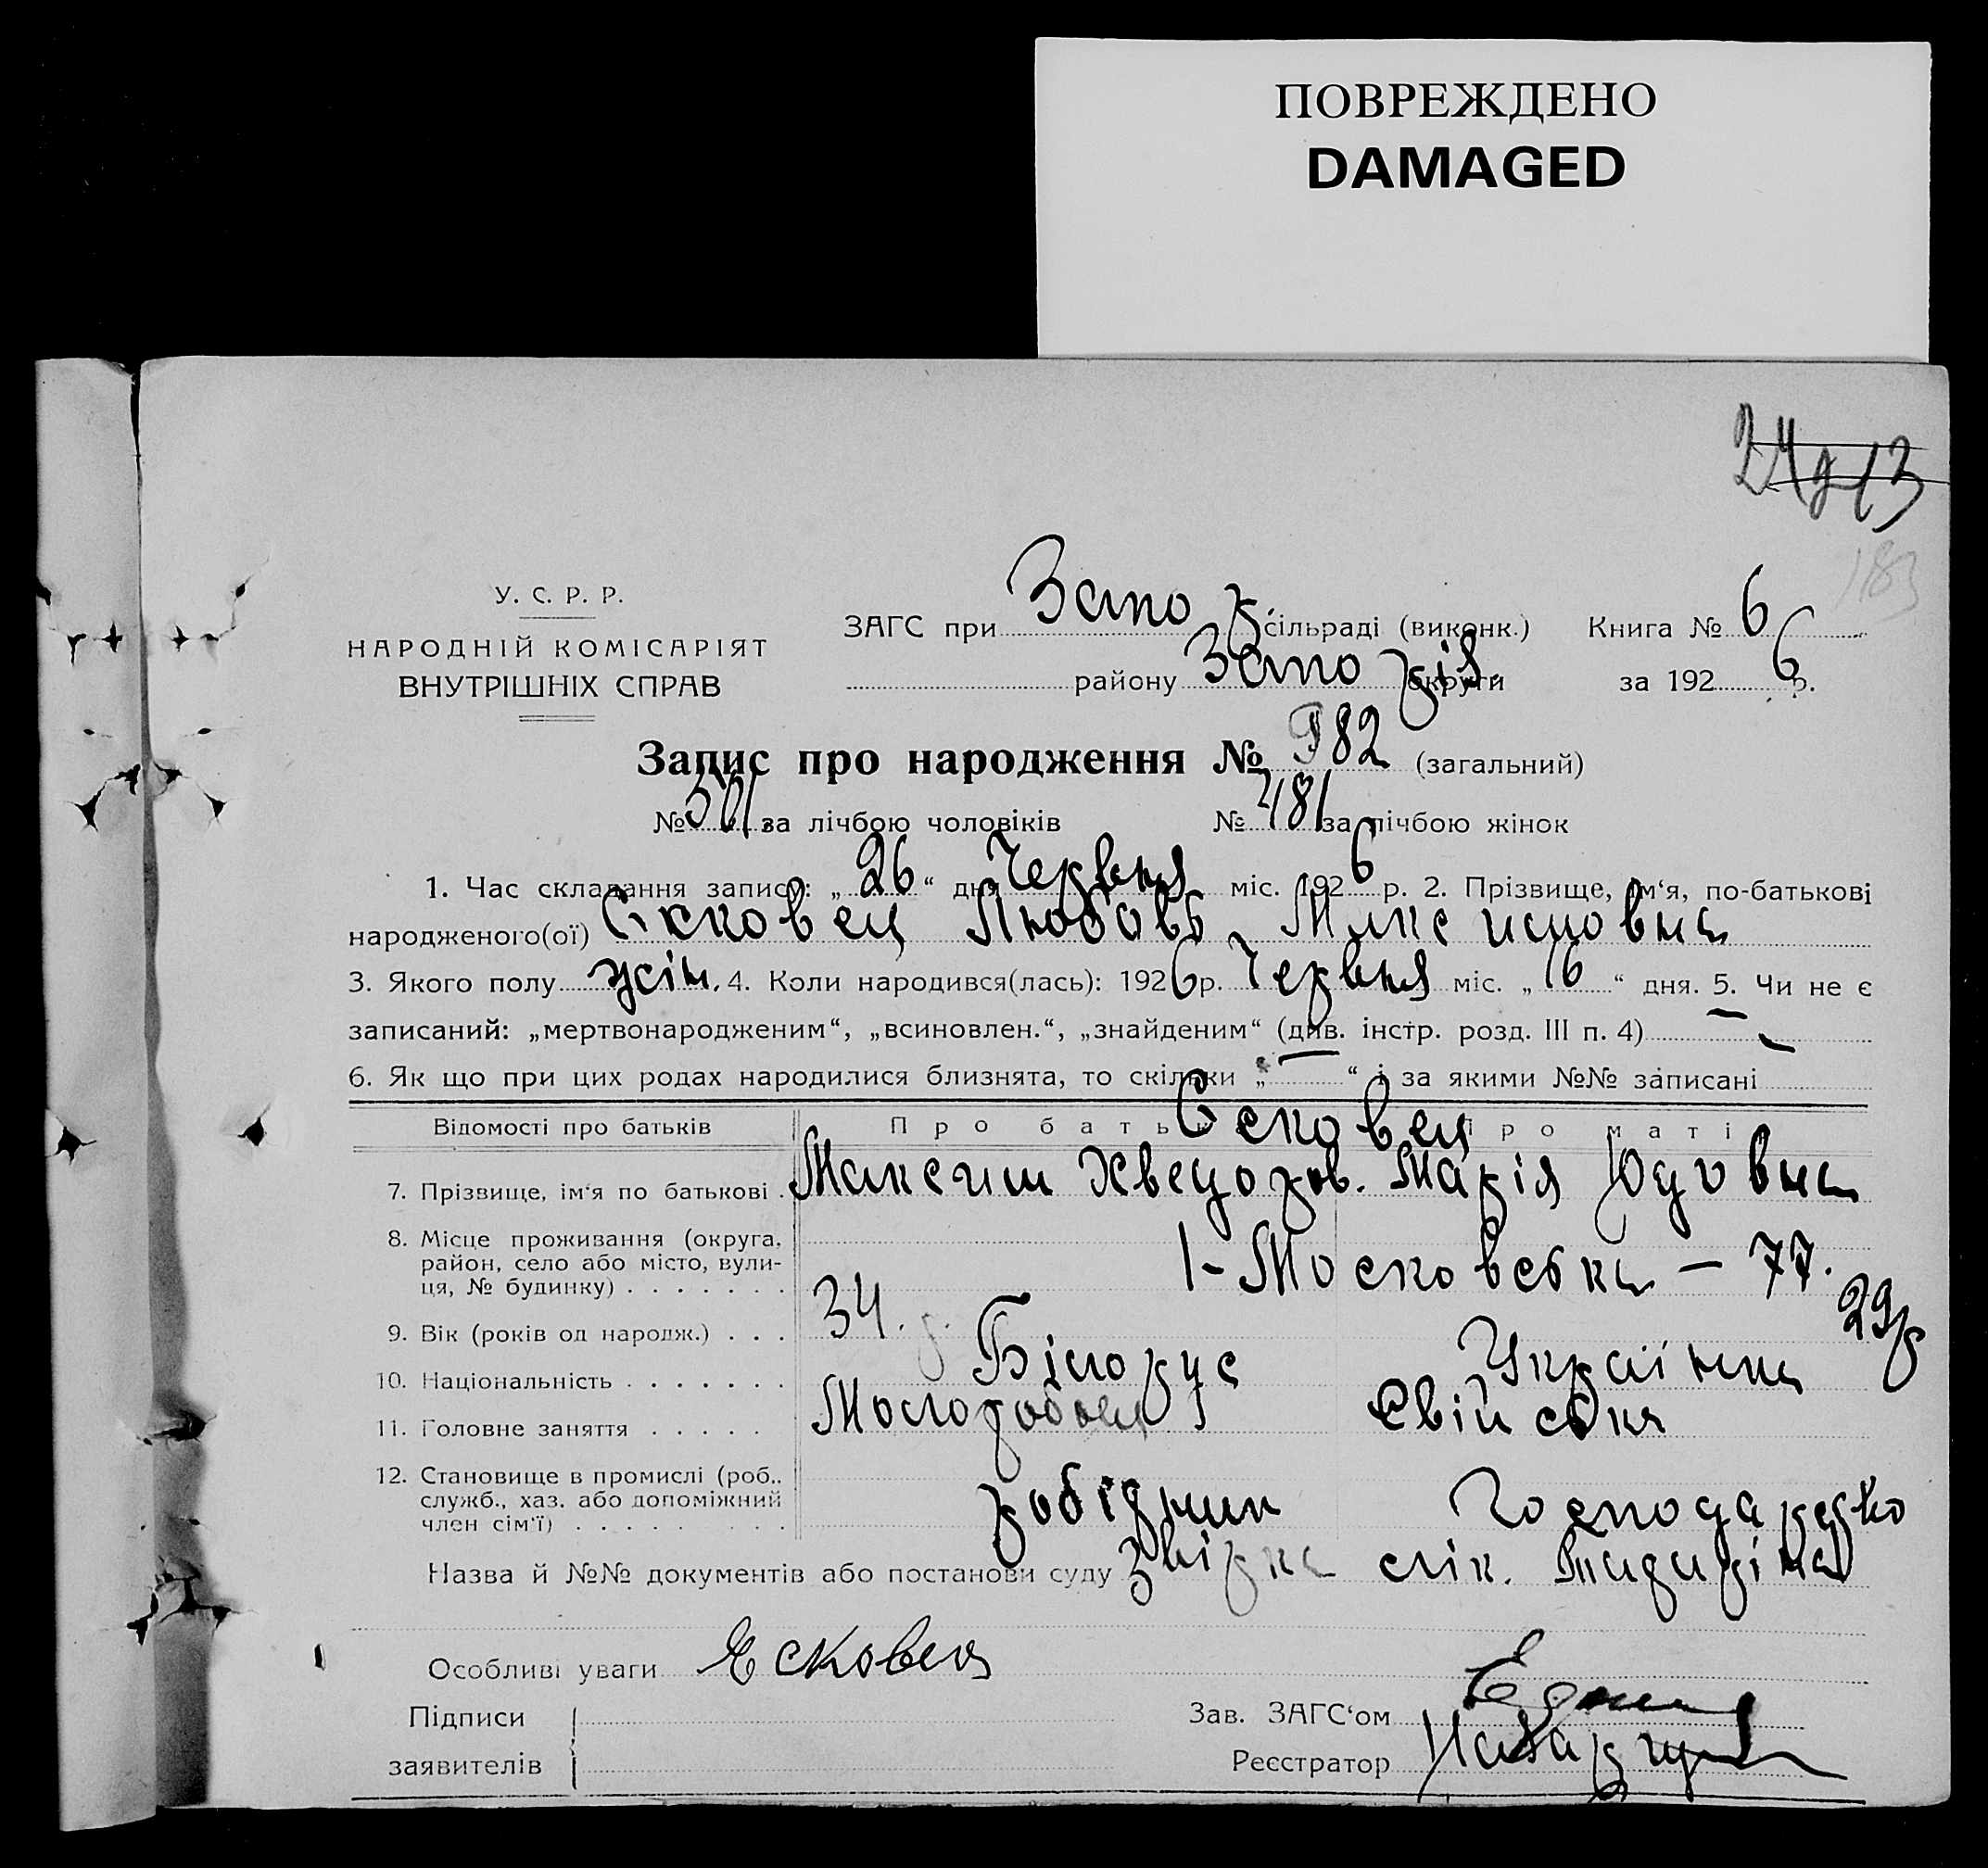 ПОВРЕЖДЕНО
DAMAGED
183
У. С. Р. Р.
НАРОДНІЙ КОМІСАРІЯТ
ВНУТРІШНІХ СПРАВ
ЗАГС при Запор. сільраді (виконк.) Книга № 6
району Запоріз. округи за 1926 р.
Запис про народження № 982 (загальний)
№ 501 за лічбою чоловіків № 481 за лічбою жінок
1. Час складання запису: „26“ дня Червня міс. 1926 р. 2. Прізвище, ім‘я, по-батькові
народженого(ої) Єсковец Любовь Максимовна
3. Якого полу жін. 4. Коли народився(лась): 1926 р. Червня міс. „16“ дня. 5. Чи не є
записаний: „мертвонародженим“, „всиновлен.“, „знайденим“ (див. інстр. розд. III п. 4) —
6. Як що при цих родах народилися близнята, то скільки „—“ і за якими №№ записані
Відомості про батьків Про батька Про матір
Єсковец
7. Прізвище, ім‘я по батькові Максим Хведоров. Марія Юдовна
8. Місце проживання (округа, район, село або місто, вулиця, № будинку) 1-Московська – 77.
9. Вік (років од народж.) 34. 29
10. Національність Білорус Українка
11. Головне заняття Молоробоец Свійська
12. Становище в промислі (роб., служб., хаз. або допоміжний член сім‘ї) робідник Господарсько
Назва й №№ документів або постанови суду лік.
Особливі уваги Есковец
Підписи
заявителів
Зав. ЗАГС‘ом
Реєстратор